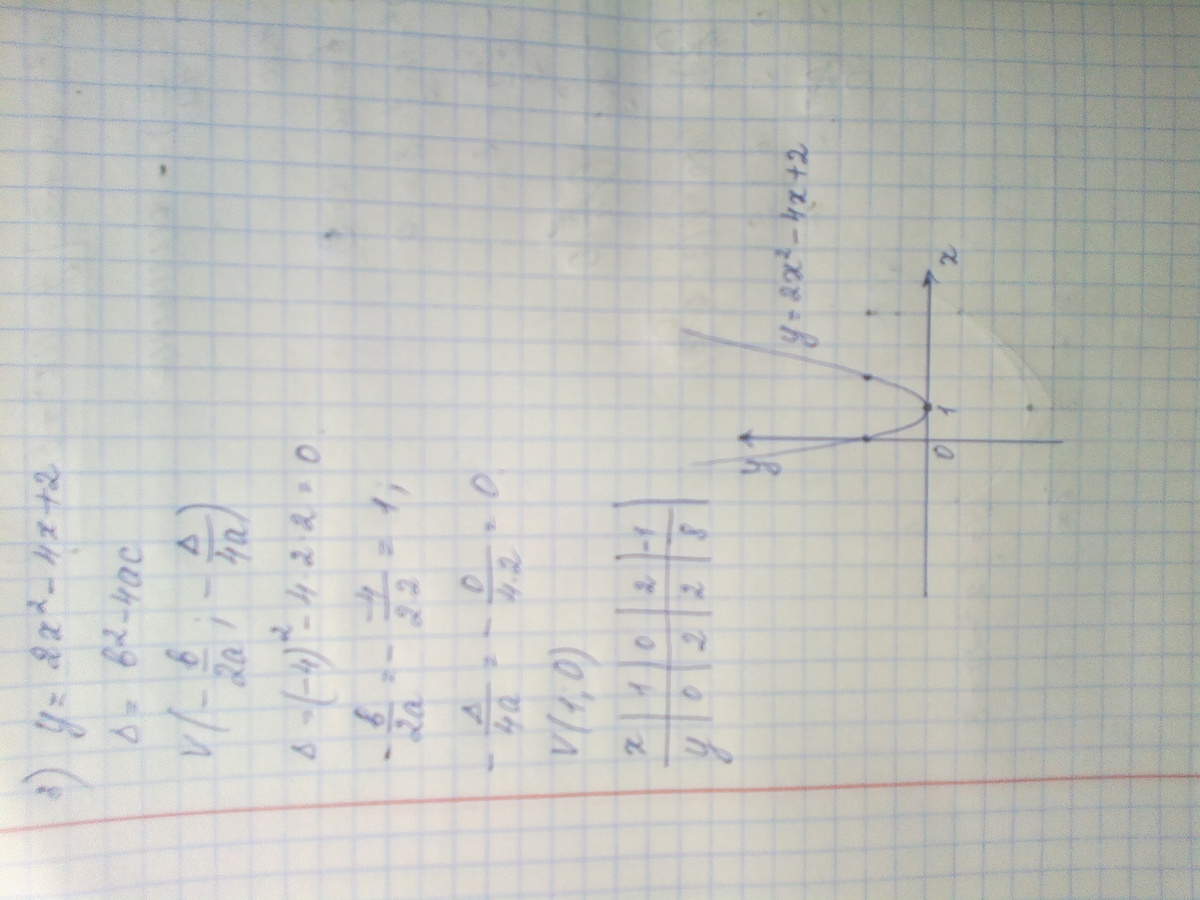 3) y = 2x² - 4x + 2
Δ = b² - 4ac
V(-b/2a; -Δ/4a)
Δ = (-4)² - 4·2·2 = 0
-b/2a = - -4/2·2 = 1;
-Δ/4a = - 0/4·2 = 0
V(1; 0)
x | 1 | 0 | 2 | -1 |
y | 0 | 2 | 2 | 8 |
y
y = 2x² - 4x + 2
x
0
1